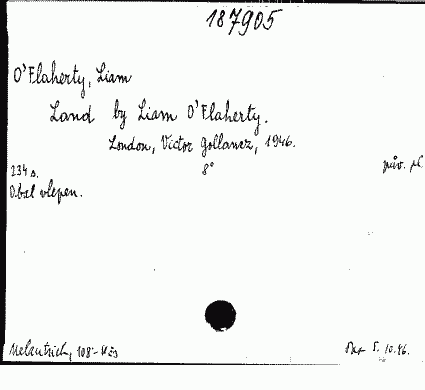 187905
O'Flaherty, Liam
Land by Liam O'Flaherty.
London, Victor Gollancz, 1946.
234 s. 8° pův. pl.
Obal vlepen.
Melantrich, 108'- Kčs 5. 10. 46.